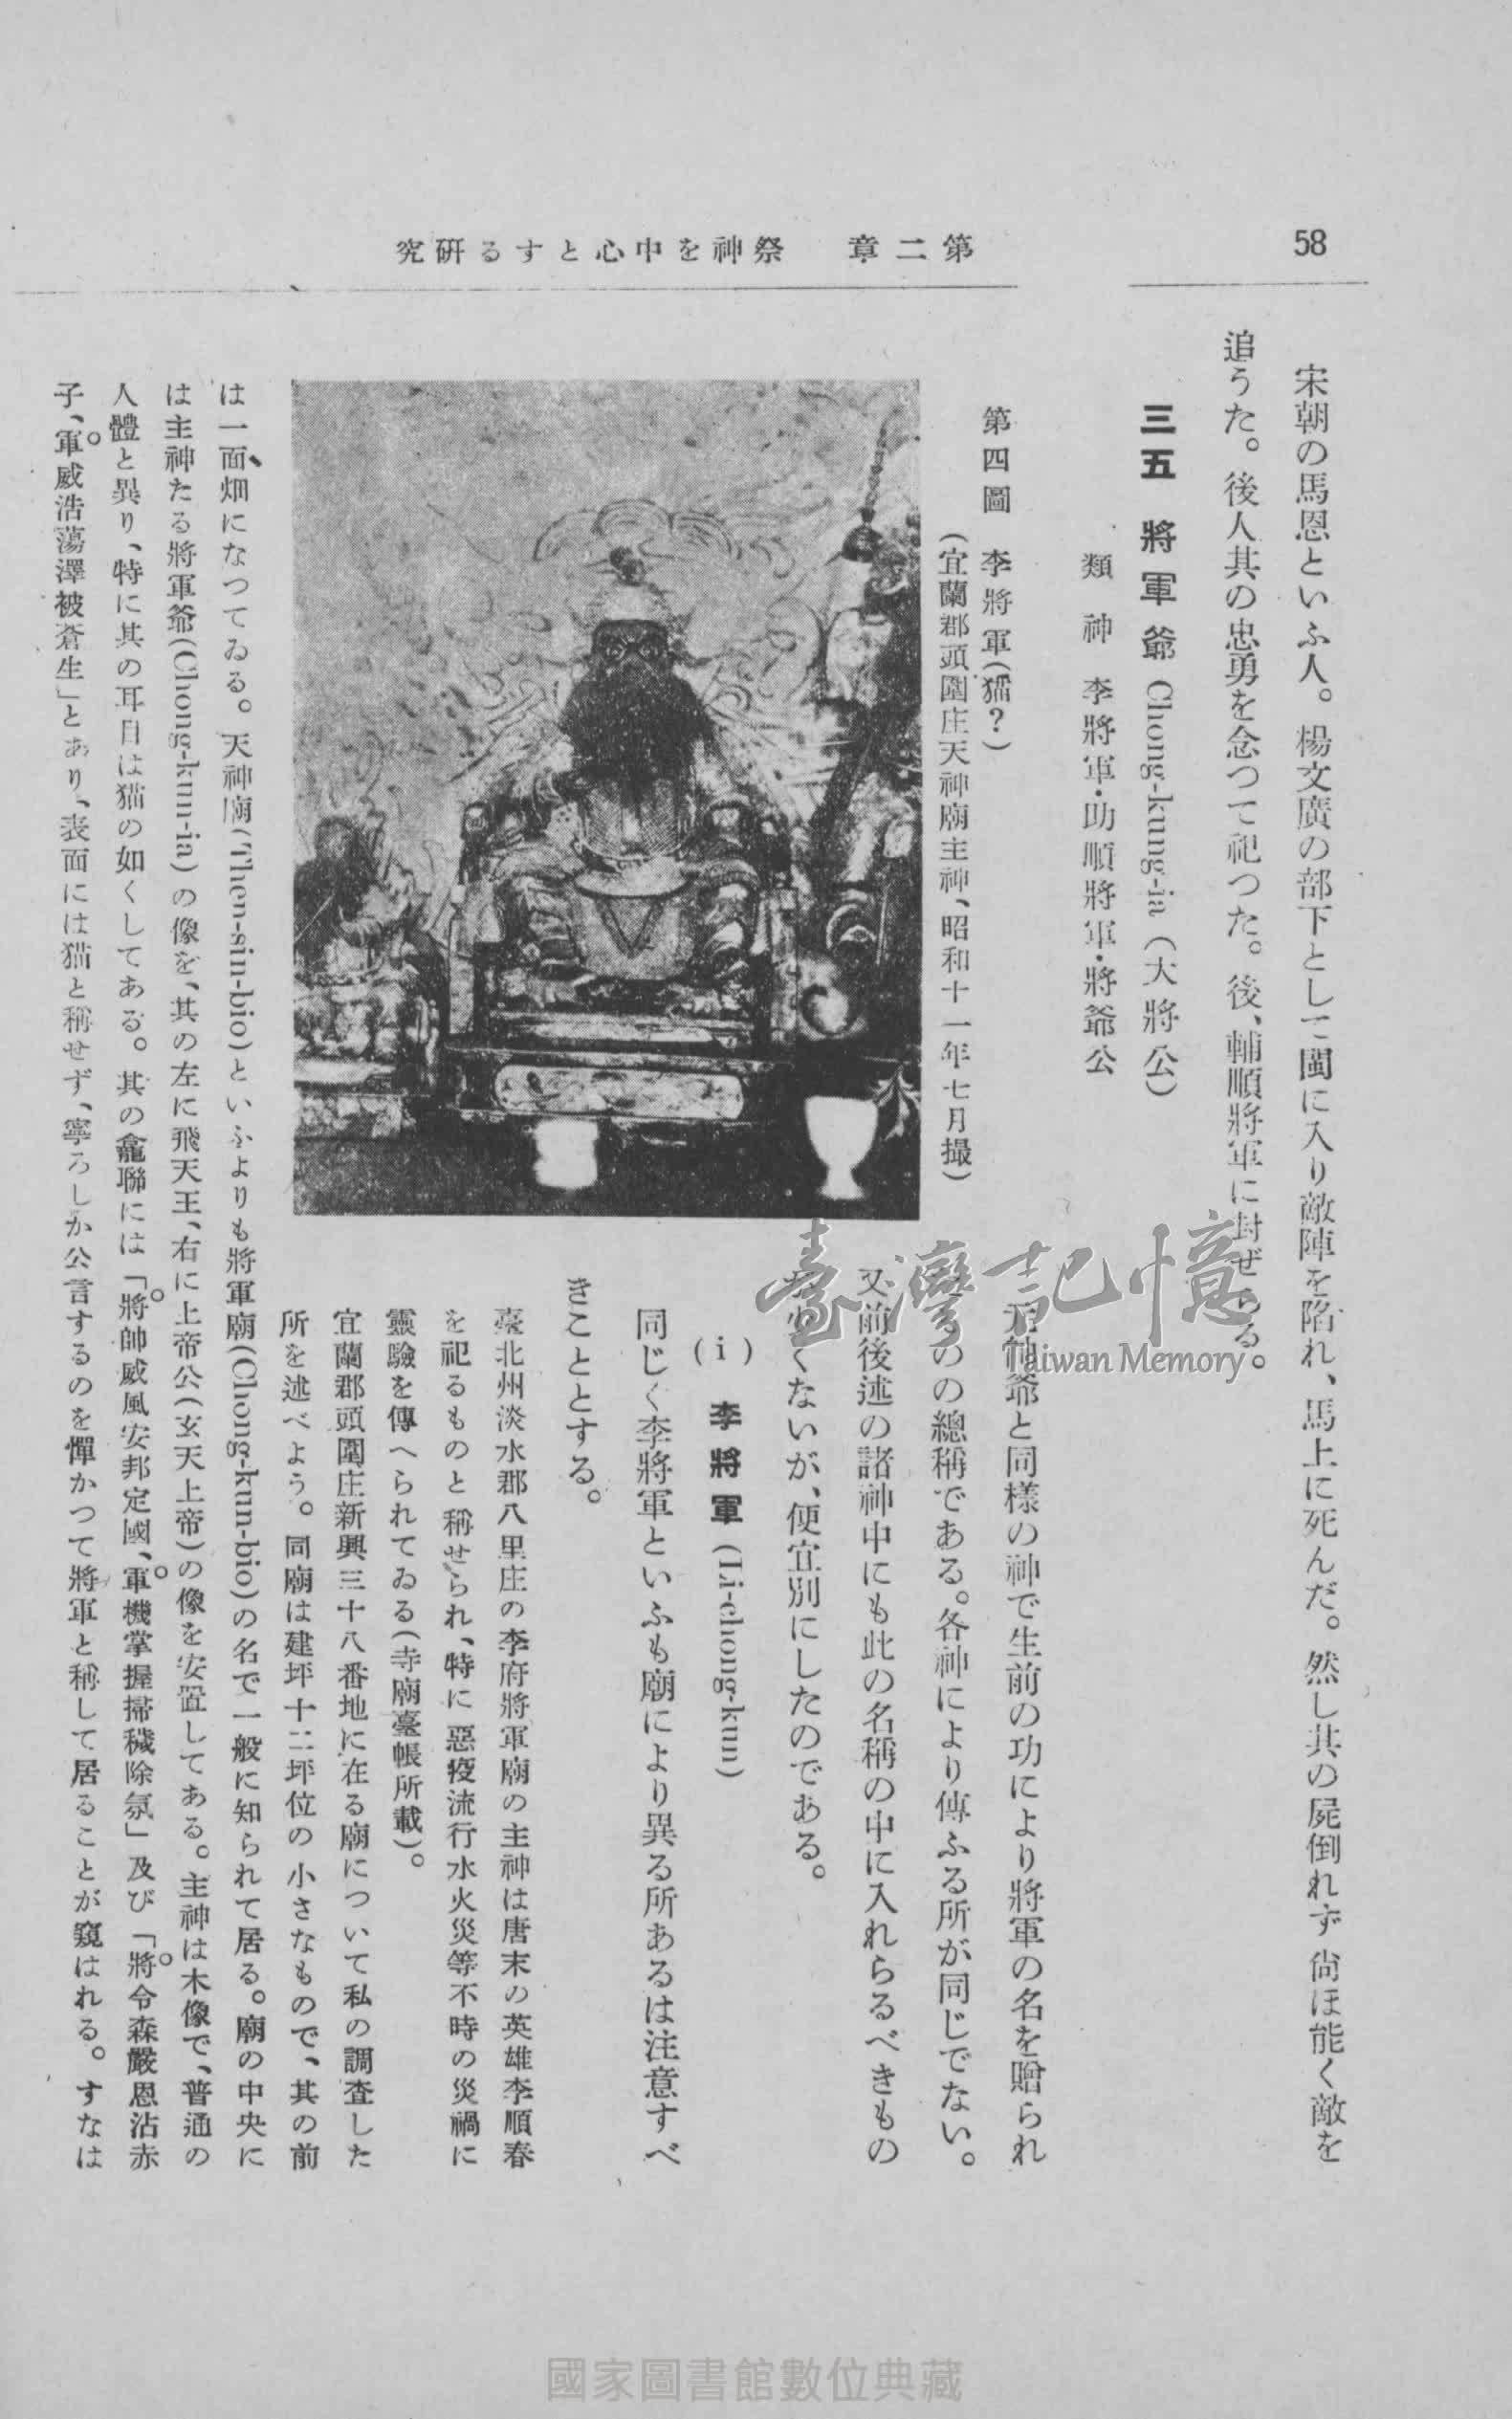 58
第二章　祭神を中心とする研究
宋朝の馬恩といふ人。楊文廣の部下として閩に入り敵陣を陷れ、馬上に死んだ。然し其の屍倒れず尚ほ能く敵を
追うた。後人其の忠勇を念つて祀つた。後、輔順將軍に封ぜらる。
三五　將軍爺 Chong-kung-ia（大將公）
類神　李將軍・助順將軍・將爺公
第四圖　李將軍（猫？）
（宜蘭郡頭圍庄天神廟主神、昭和十一年七月撮）
爺と同様の神で生前の功により將軍の名を贈られ
のの總稱である。各神により傳ふる所が同じでない。
又前後述の諸神中にも此の名稱の中に入れらるべきもの
くないが、便宜別にしたのである。
(i)　李將軍 (Li-chong-kun)
同じく李將軍といふも廟により異る所あるは注意すべ
きこととする。
臺北州淡水郡八里庄の李府將軍廟の主神は唐末の英雄李順春
を祀るものと稱せられ、特に惡疫流行水火災等不時の災禍に
靈驗を傳へられてゐる（寺廟臺帳所載）。
宜蘭郡頭圍庄新興三十八番地に在る廟について私の調査した
所を述べよう。同廟は建坪十二坪位の小さなもので、其の前
は一面畑になつてゐる。天神廟(Then-sin-bio)といふよりも將軍廟(Chong-kun-bio)の名で一般に知られて居る。廟の中央に
は主神たる將軍爺(Chong-kun-ia)の像を、其の左に飛天王、右に上帝公（玄天上帝）の像を安置してある。主神は木像で、普通の
人體と異り、特に其の耳目は猫の如くしてある。其の龕聯には「將帥威風安邦定國、軍機掌握掃穢除氛」及び「將令森嚴恩沾赤
子、軍威浩蕩澤被蒼生」とあり、表面には猫と稱せず、寧ろしか公言するのを憚かつて將軍と稱して居ることが窺はれる。すなは
臺灣記憶
Taiwan Memory
國家圖書館數位典藏